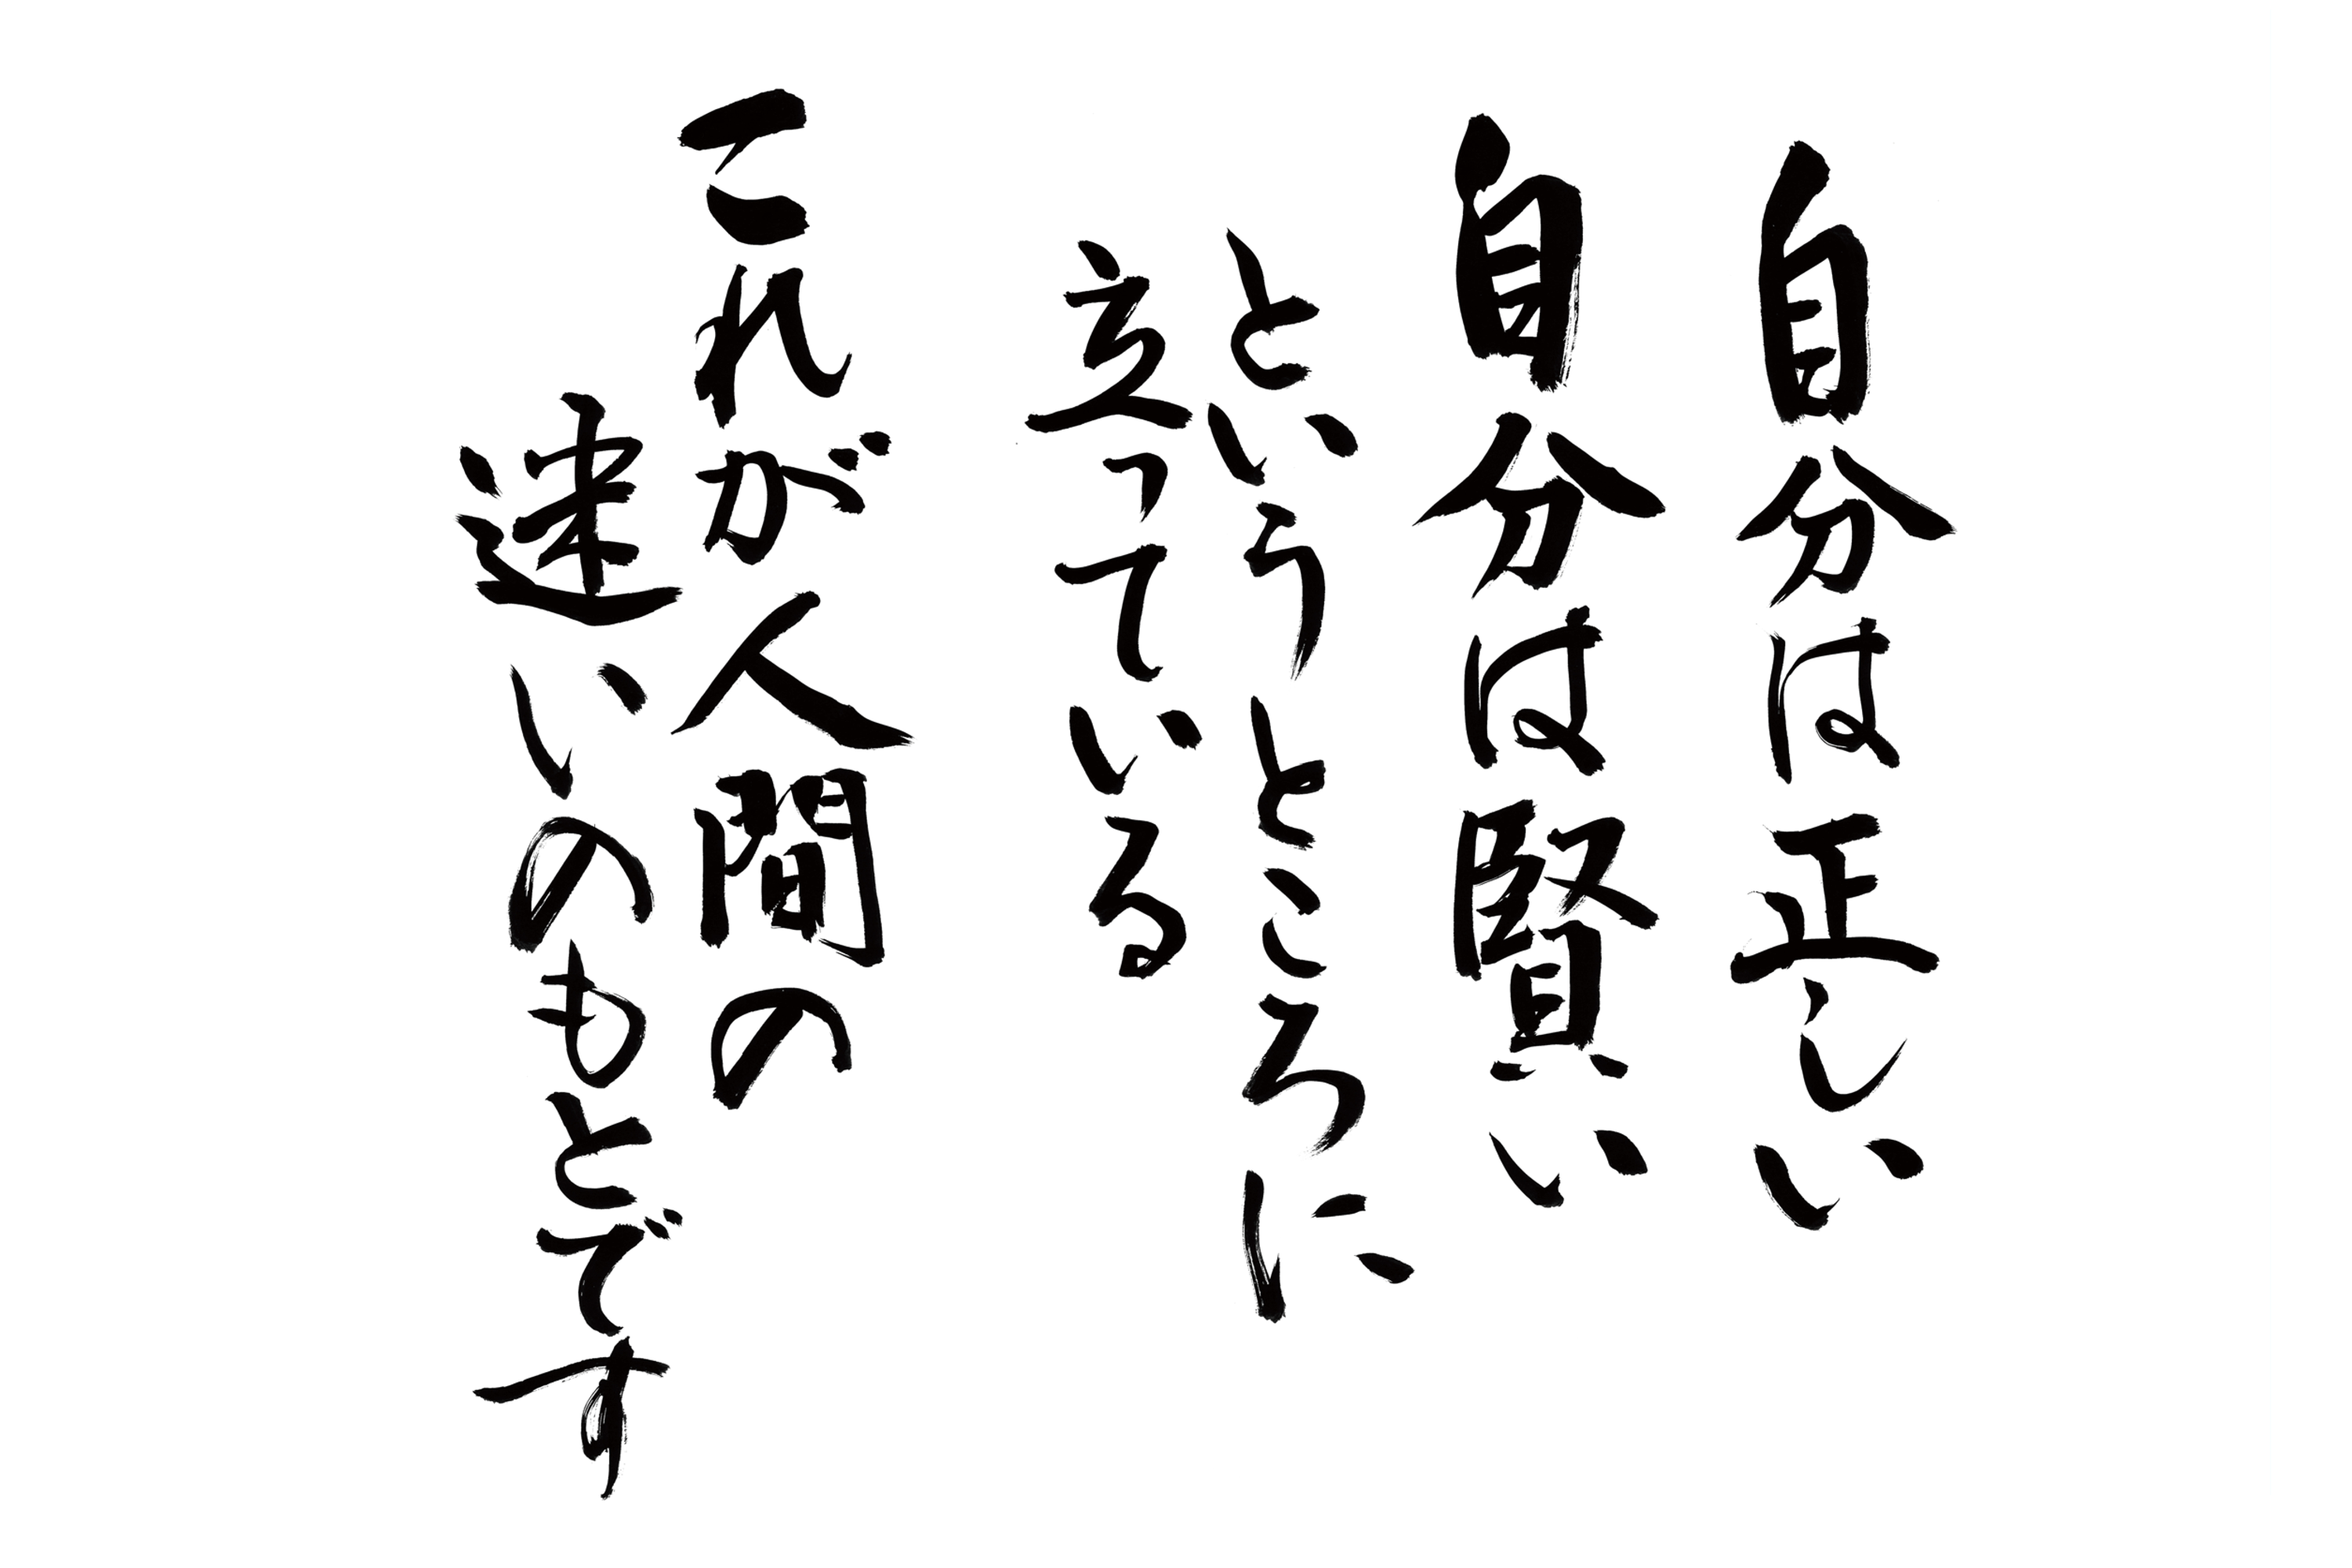 自分は正しい
自分は賢い
というところに
立っている
これが人間の
違いのもとです